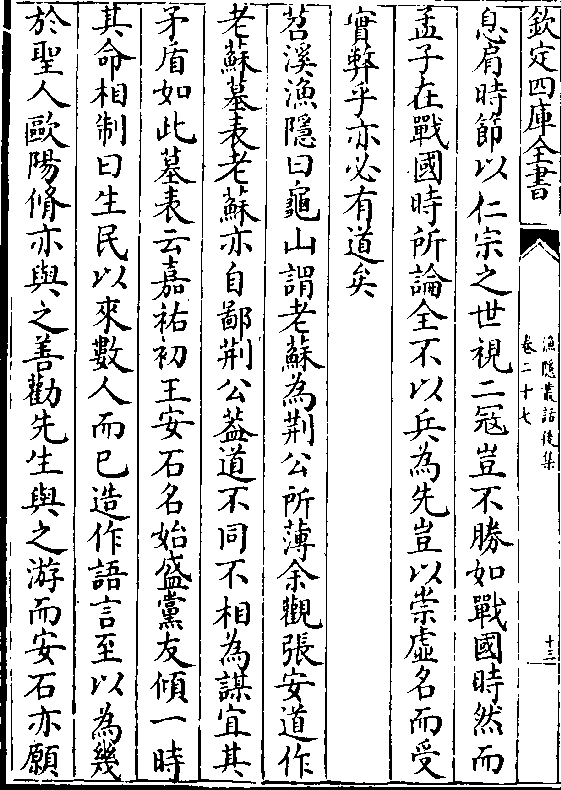 欽定四庫全書
漁隱叢話後集
卷二十七
十三
息肩時節以仁宗之世視二冦豈不勝如戰國時然而
孟子在戰國時所論全不以兵為先豈以崇虛名而受
實弊乎亦必有道矣
苕溪漁隱曰龜山謂老蘇為荆公所薄余觀張安道作
老蘇墓表老蘇亦自鄙荆公葢道不同不相為謀宜其
矛盾如此墓表云嘉祐初王安石名始盛黨友傾一時
其命相制曰生民以來數人而已造作語言至以為幾
於聖人歐陽脩亦與之善勸先生與之游而安石亦願